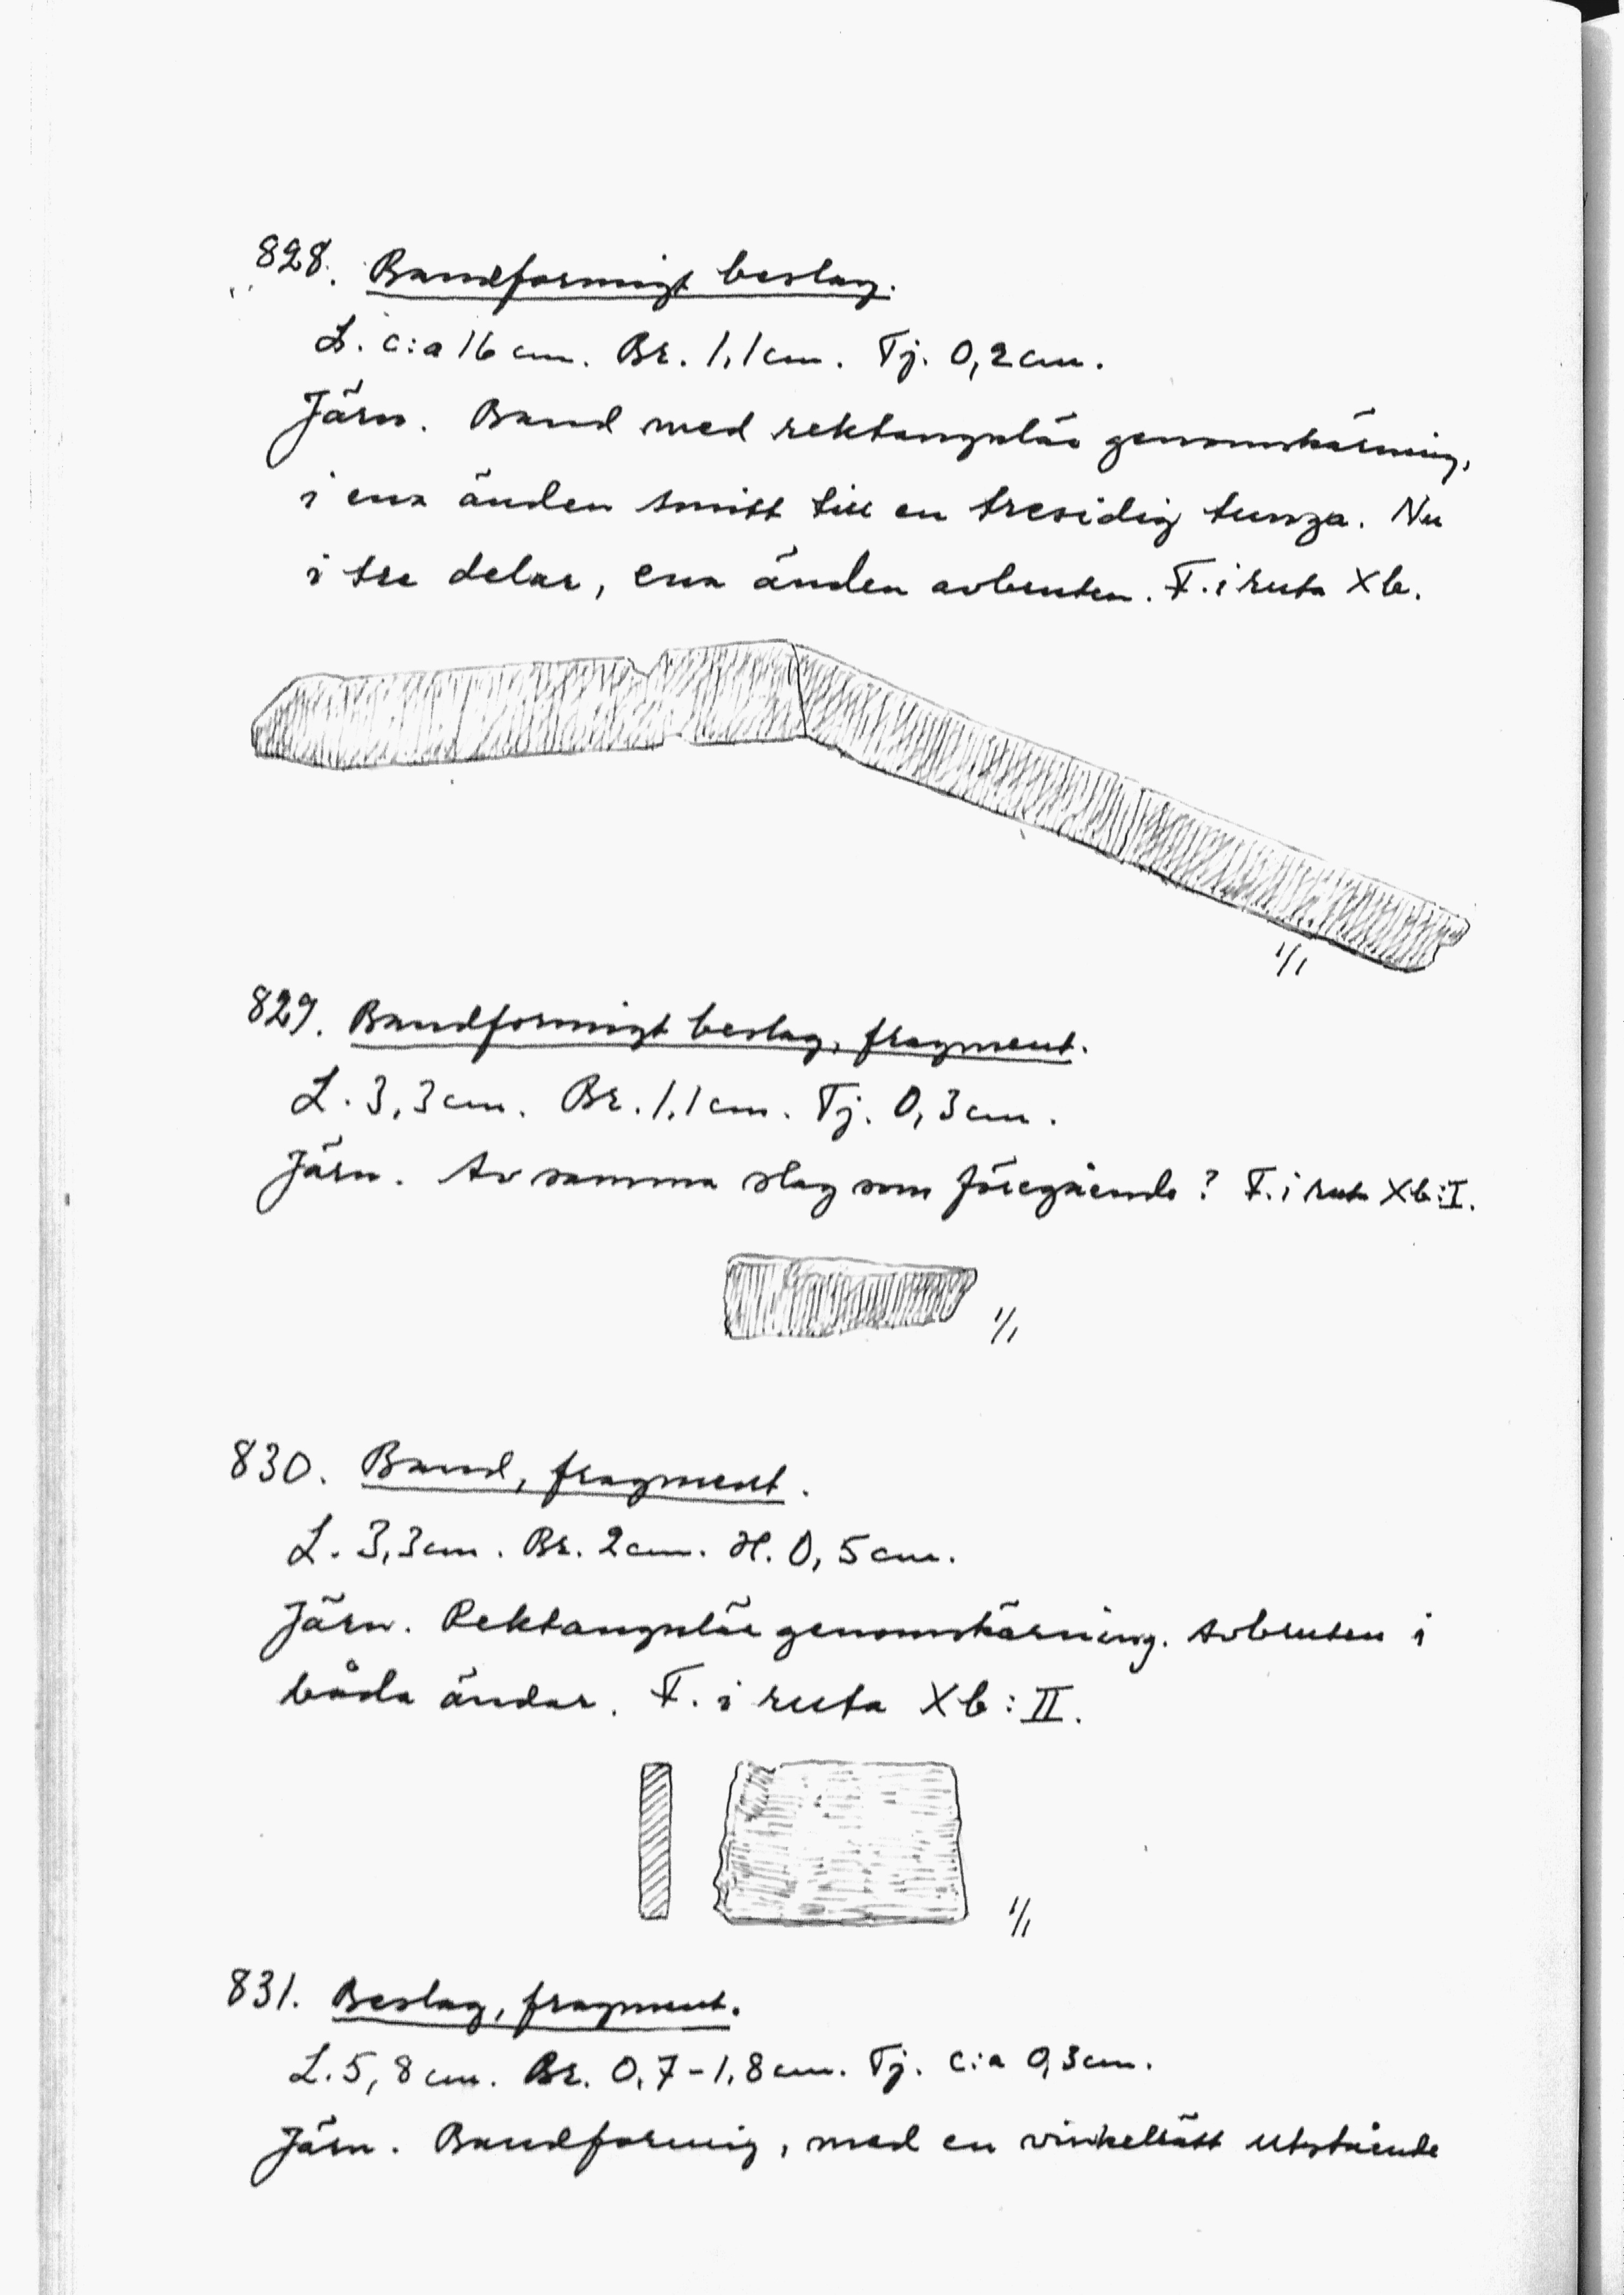 828. Bandformigt beslag.
L. c:a 16 cm. Br. 1,1 cm. Tj. 0,2 cm.
Järn. Band med rektangulär genomskärning,
i ena änden smitt till en tresidig tunga. Nu
i tre delar, ena änden avbruten. F. i ruta Xb.
1/1
829. Bandformigt beslag, fragment.
L. 3,3 cm. Br. 1,1 cm. Tj. 0,3 cm.
Järn. Av samma slag som föregående? F. i ruta Xb:I.
1/1
830. Band, fragment.
L. 3,3 cm. Br. 2 cm. H. 0,5 cm.
Järn. Rektangulär genomskärning. Avbruten i
båda ändar. F. i ruta Xb:II.
1/1
831. Beslag, fragment.
L. 5,8 cm. Br. 0,7-1,8 cm. Tj. c:a 0,3 cm.
Järn. Bandformig, med en vinkelrätt utstående